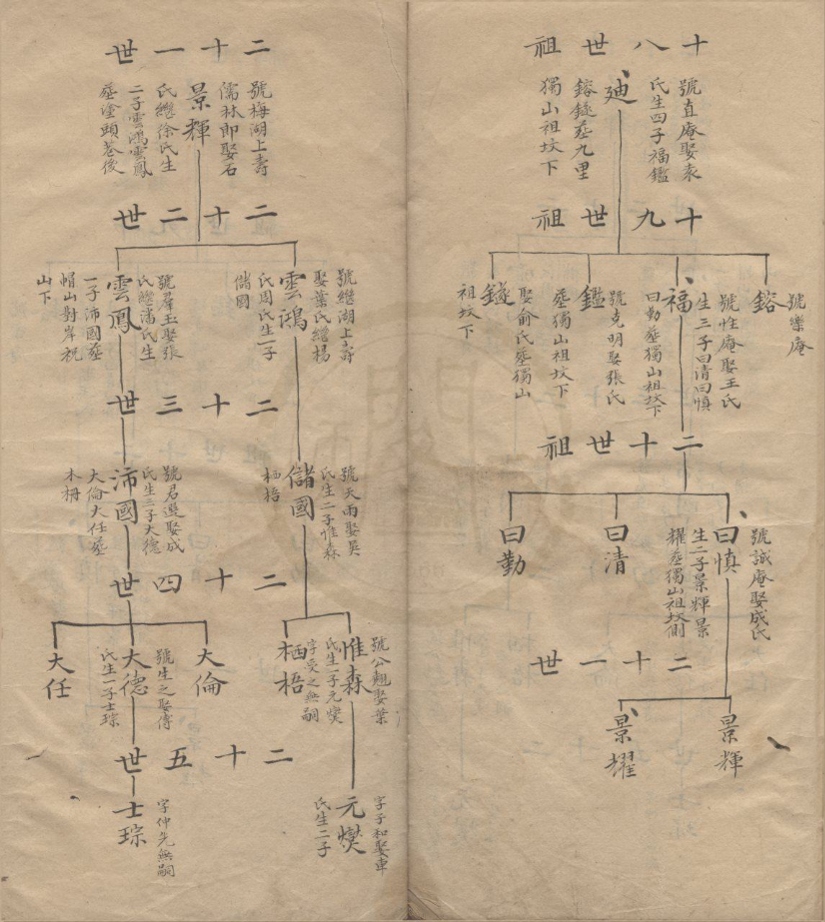 十八世祖
廸
號直庵娶袁
氏生四子福鑑
鎔鐩葬九里
獨山祖坟下
十九世祖
鎔
號樂庵
福
號性庵娶王氏
生三子曰清曰慎
曰勤葬獨山祖坟下
鑑
號克明娶張氏
葬獨山祖坟下
鐩
娶俞氏葬獨山
祖坟下
二十世祖
曰慎
號誠庵娶成氏
生二子景輝景
耀葬獨山祖坟側
曰清
曰勤
二十一世
景輝
景耀
二十一世
景輝
號梅湖上壽
儒林郎娶石
氏繼徐氏生
二子雲鴻雲鳳
葬塗頭巷後
二十二世
雲鴻
號繼湖上壽
娶葉氏繼楊
氏周氏生一子
儲國
雲鳳
號羣玉娶張
氏繼潘氏生
一子沛國葬
帽山對岸祝
山下
二十三世
儲國
號天雨娶吳
氏生二子惟森
栖梧
沛國
號君選娶成
氏生三子大德
大倫大任葬
木柵
二十四世
惟森
號公翹娶葉
氏生一子元爕
栖梧
字受之無嗣
大倫
大德
號生之娶傅
氏生一子士琮
大任
二十五世
元爕
字子和娶車
氏生二子
士琮
字仲先無嗣